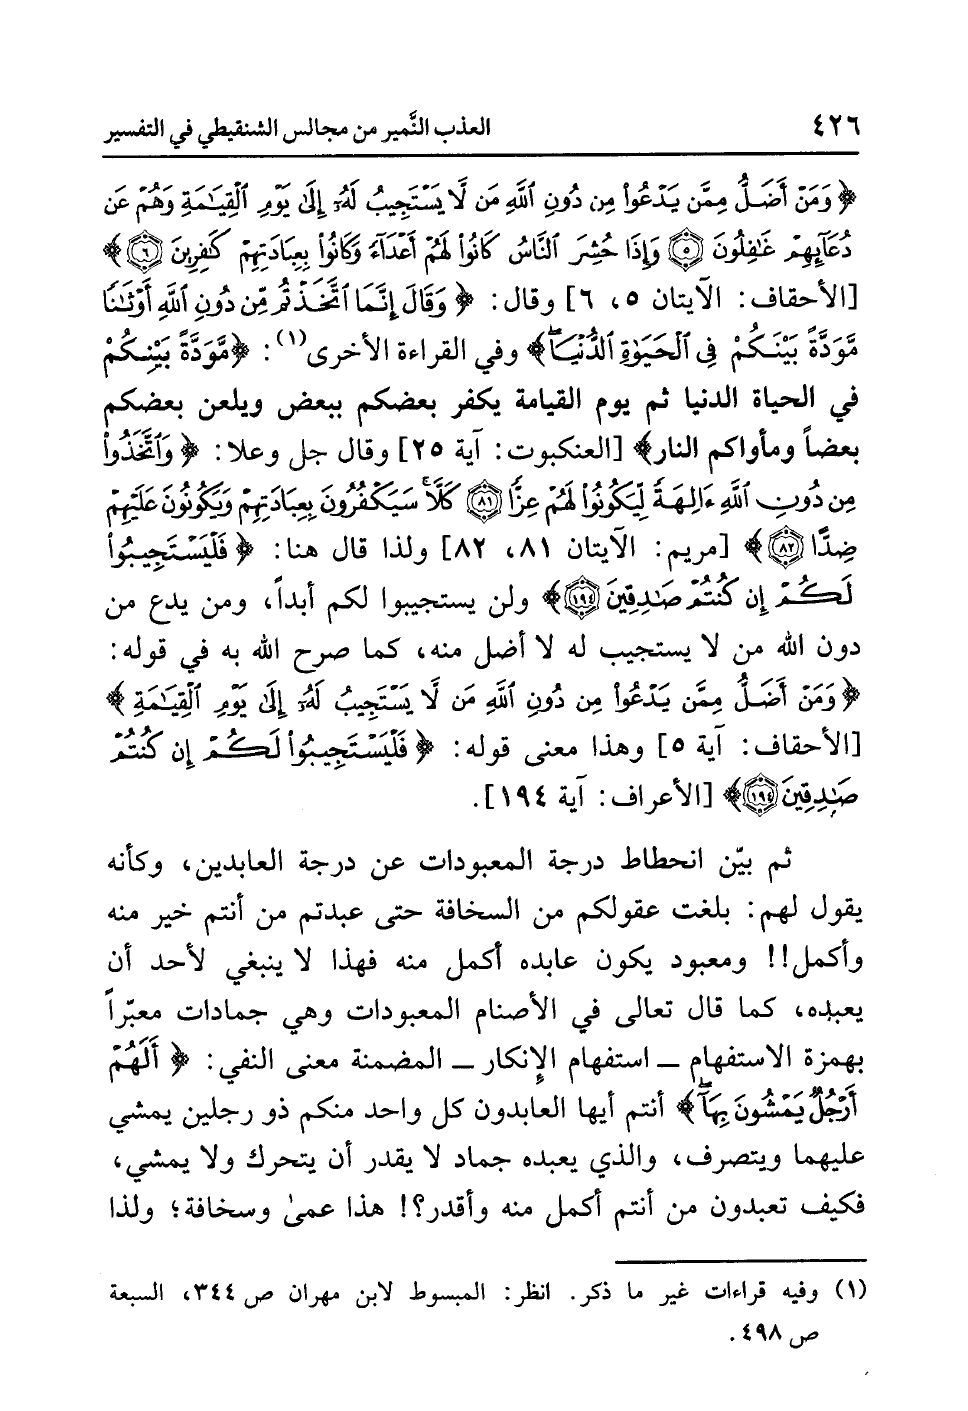 ٤٢٦ العذب النَّمير من مجالس الشنقيطي في التفسير
﴿وَمَنْ أَضَلُّ مِمَّن يَدْعُوا۟ مِن دُونِ ٱللَّهِ مَن لَّا يَسْتَجِيبُ لَهُۥٓ إِلَىٰ يَوْمِ ٱلْقِيَـٰمَةِ وَهُمْ عَن
دُعَآئِهِمْ غَـٰفِلُونَ ٥ وَإِذَا حُشِرَ ٱلنَّاسُ كَانُوا۟ لَهُمْ أَعْدَآءً وَكَانُوا۟ بِعِبَادَتِهِمْ كَـٰفِرِينَ ٦﴾
[الأحقاف: الآيتان ٥، ٦] وقال: ﴿وَقَالَ إِنَّمَا ٱتَّخَذْتُم مِّن دُونِ ٱللَّهِ أَوْثَـٰنًا
مَّوَدَّةً بَيْنَكُمْ فِى ٱلْحَيَوٰةِ ٱلدُّنْيَا ۖ﴾ وفي القراءة الأخرى(١): ﴿مَّوَدَّةَ بَيْنِكُمْ
في الحياة الدنيا ثم يوم القيامة يكفر بعضكم ببعض ويلعن بعضكم
بعضاً ومأواكم النار﴾ [العنكبوت: آية ٢٥] وقال جل وعلا: ﴿وَٱتَّخَذُوا۟
مِن دُونِ ٱللَّهِ ءَالِهَةً لِّيَكُونُوا۟ لَهُمْ عِزًّا ٨١ كَلَّا ۚ سَيَكْفُرُونَ بِعِبَادَتِهِمْ وَيَكُونُونَ عَلَيْهِمْ
ضِدًّا ٨٢﴾ [مريم: الآيتان ٨١، ٨٢] ولذا قال هنا: ﴿فَلْيَسْتَجِيبُوا۟
لَكُمْ إِن كُنتُمْ صَـٰدِقِينَ ١٩٤﴾ ولن يستجيبوا لكم أبداً، ومن يدع من
دون الله من لا يستجيب له لا أضل منه، كما صرح الله به في قوله:
﴿وَمَنْ أَضَلُّ مِمَّن يَدْعُوا۟ مِن دُونِ ٱللَّهِ مَن لَّا يَسْتَجِيبُ لَهُۥٓ إِلَىٰ يَوْمِ ٱلْقِيَـٰمَةِ﴾
[الأحقاف: آية ٥] وهذا معنى قوله: ﴿فَلْيَسْتَجِيبُوا۟ لَكُمْ إِن كُنتُمْ
صَـٰدِقِينَ ١٩٤﴾ [الأعراف: آية ١٩٤].
ثم بيّن انحطاط درجة المعبودات عن درجة العابدين، وكأنه
يقول لهم: بلغت عقولكم من السخافة حتى عبدتم من أنتم خير منه
وأكمل!! ومعبود يكون عابده أكمل منه فهذا لا ينبغي لأحد أن
يعبده، كما قال تعالى في الأصنام المعبودات وهي جمادات معبّراً
بهمزة الاستفهام ــ استفهام الإنكار ــ المضمنة معنى النفي: ﴿أَلَهُمْ
أَرْجُلٌ يَمْشُونَ بِهَآ ۖ﴾ أنتم أيها العابدون كل واحد منكم ذو رجلين يمشي
عليهما ويتصرف، والذي يعبده جماد لا يقدر أن يتحرك ولا يمشي،
فكيف تعبدون من أنتم أكمل منه وأقدر؟! هذا عمىٰ وسخافة؛ ولذا
(١) وفيه قراءات غير ما ذكر. انظر: المبسوط لابن مهران ص ٣٤٤، السبعة
ص ٤٩٨.